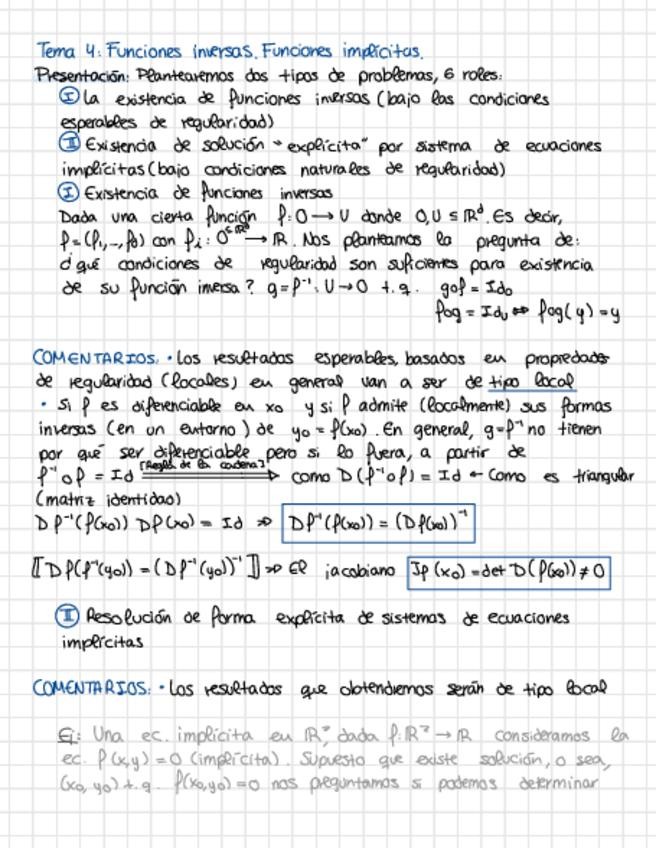 Tema 4: Funciones inversas. Funciones implícitas.
Presentación: Plantearemos dos tipos de problemas, 6 roles:
Ⓘ La existencia de funciones inversas (bajo las condiciones
esperables de regularidad)
Ⓘⓘ Existencia de solución "explícita" por sistema de ecuaciones
implícitas (bajo condiciones naturales de regularidad)
Ⓘ Existencia de funciones inversas
Dada una cierta función f: O → U donde O, U ⊆ ℝᵈ. Es decir,
f = (f₁, -, f_d) con f_i : O^{⊆ℝᵈ} → ℝ. Nos planteamos la pregunta de:
¿qué condiciones de regularidad son suficientes para existencia
de su función inversa? g = f⁻¹: U → O t.q. g∘f = Id_O
f∘g = Id_U ⇔ f∘g(y) = y
COMENTARIOS: · Los resultados esperables, basados en propiedades
de regularidad (locales) en general van a ser de tipo local
· Si f es diferenciable en x₀ y si f admite (localmente) sus formas
inversas (en un entorno) de y₀ = f(x₀). En general, g = f⁻¹ no tienen
por qué ser diferenciable pero si lo fuera, a partir de
f⁻¹∘f = Id [Regla de la cadena] ⟹ como D(f⁻¹∘f) = Id ← Como es triangular
(matriz identidad)
Df⁻¹(f(x₀)) Df(x₀) = Id ⇒ Df⁻¹(f(x₀)) = (Df(x₀))⁻¹
⟦Df(f⁻¹(y₀)) = (Df⁻¹(y₀))⁻¹⟧ ⇒ El jacobiano Jf(x₀) = det D(f(x₀)) ≠ 0
Ⓘⓘ Resolución de forma explícita de sistemas de ecuaciones
implícitas
COMENTARIOS: · Los resultados que obtendremos serán de tipo local
Ej: Una ec. implícita en ℝ², dada f: ℝ² → ℝ consideramos la
ec. f(x,y) = 0 (implícita). Supuesto que existe solución, o sea,
(x₀, y₀) t.q. f(x₀,y₀) = 0 nos preguntamos si podemos determinar